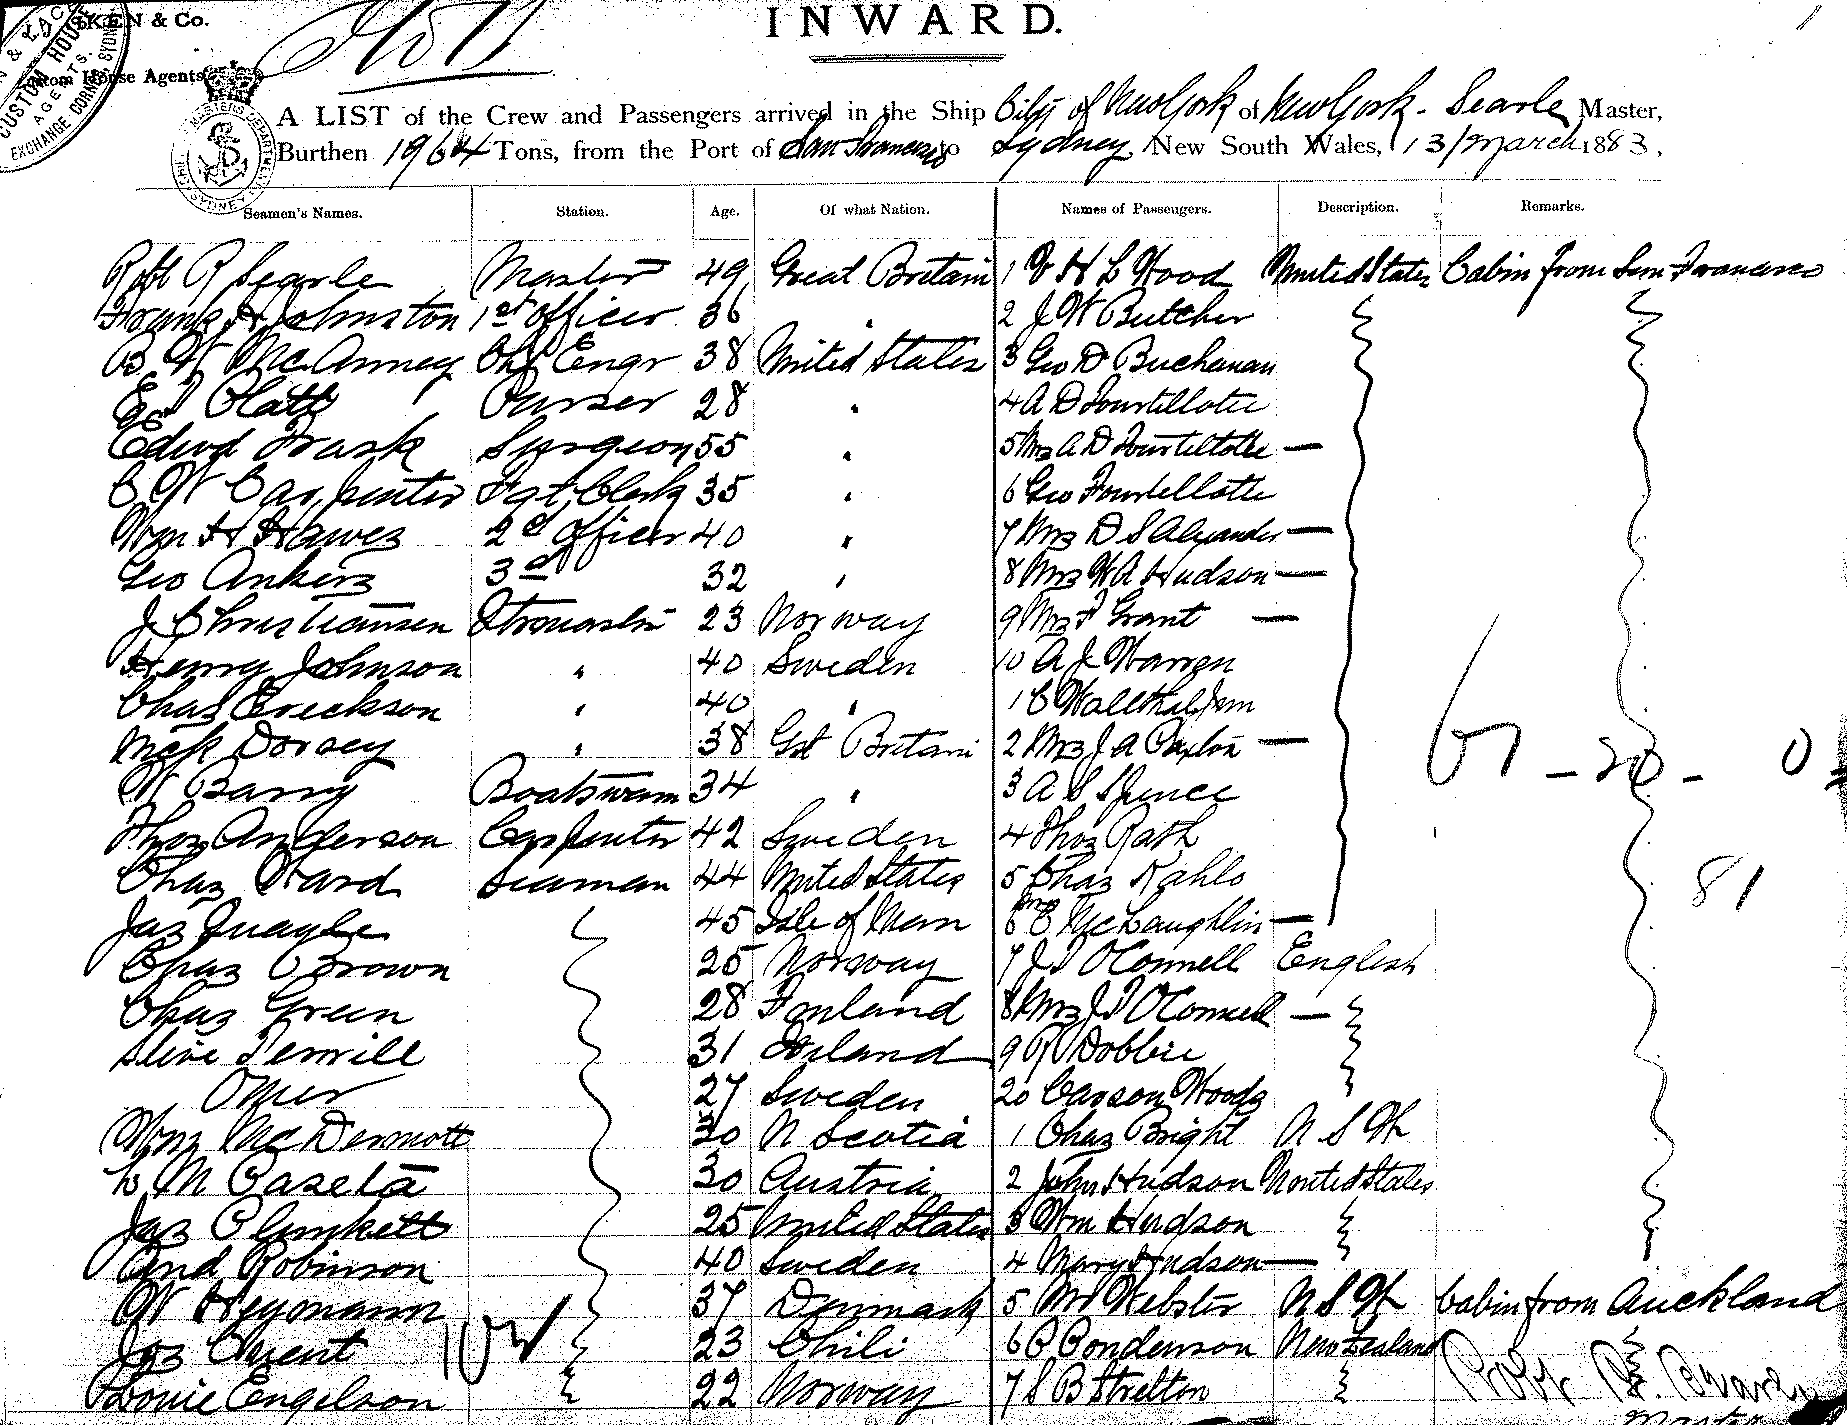 SKEN & Co.
INWARD.
Custom House Agents
CUSTOM HOUSE
AGENTS.
EXCHANGE CORNER, SYDNEY
A LIST of the Crew and Passengers arrived in the Ship City of New York of New York - Searle Master,
Burthen 1964 Tons, from the Port of San Francisco to Sydney, New South Wales, 13/March 1883.
Seamen's Names. Station. Age. Of what Nation. Names of Passengers. Description. Remarks.
Robt R Searle Master 49 Great Britain 1 H L Wood United States Cabin from San Francisco
Frank H Johnston 1st Officer 36 " 2 J W Butcher
B W McAnney Chf Engr 38 United States 3 Geo D Buchanan
Platt Purser 28 " 4 A D Tourtillotte
Edwd Trask Surgeon 55 " 5 Mrs A D Tourtillotte —
C W Carpenter Fgt. Clerk 35 " 6 Geo Tourtellotte
Wm H Hawes 2d Officer 40 " 7 Mrs D S Alexander —
Geo Ankers 3d 32 " 8 Mrs W A Hudson —
J Christiansen 23 Norway 9 Mrs F Grant —
Henry Johnson " 40 Sweden 10 A J Warren
Chas Erickson " 40 " 1 C
Mck Dorsey " 38 Gt Britain 2 Mrs J A Paxton —
W Barry Boatswain 34 " 3 A S Spence
Thos Anderson Carpenter 42 Sweden 4 Thos Rath
Chas Ward Seaman 44 United States 5 Chas Kahlo
Jas Quayle 45 Isle of Man 6 Mrs C McLaughlin —
Chas Brown 25 Norway 7 J T OConnell English
Chas Green 28 Finland 8 Mrs J T OConnell —
Terrill 31 Ireland 9 R Dobbie
27 Sweden 20 Carson Woods
Wm McDermott 30 N Scotia 1 Chas Bright N S W
L M Caseta 30 Austria 2 John Hudson United States
Jas Plunkett 25 United States 3 Wm Hudson
And Robinson 40 Sweden 4 Mary Hudson —
W Heymann 37 Denmark 5 Mr Webster N S W Cabin from Auckland
Jos 23 Chili 6 P Ponderson New Zealand
Louie Engelson 22 Norway 7 S B Stretton
81
Master